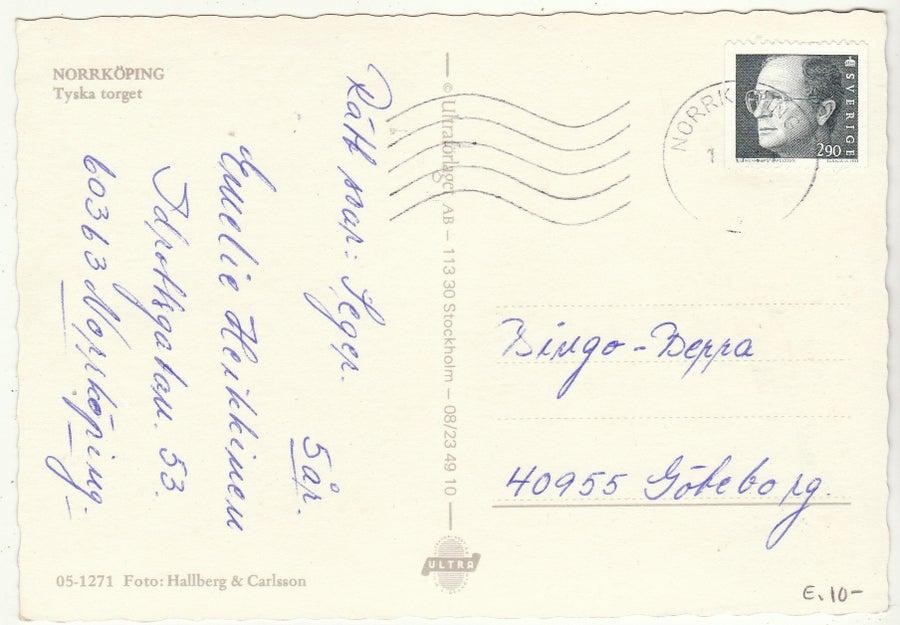 NORRKÖPING
Tyska torget
Rätt svar: Seger.
5 år.
Emelie Heikkinen
Idrottsgatan. 53.
60363 Norrköping.
05-1271 Foto: Hallberg & Carlsson
© Ultraförlaget AB – 113 30 Stockholm – 08/23 49 10
ULTRA
NORRKÖPING
1
SVERIGE
290
Bingo-Beppa
40955 Göteborg.
E. 10-